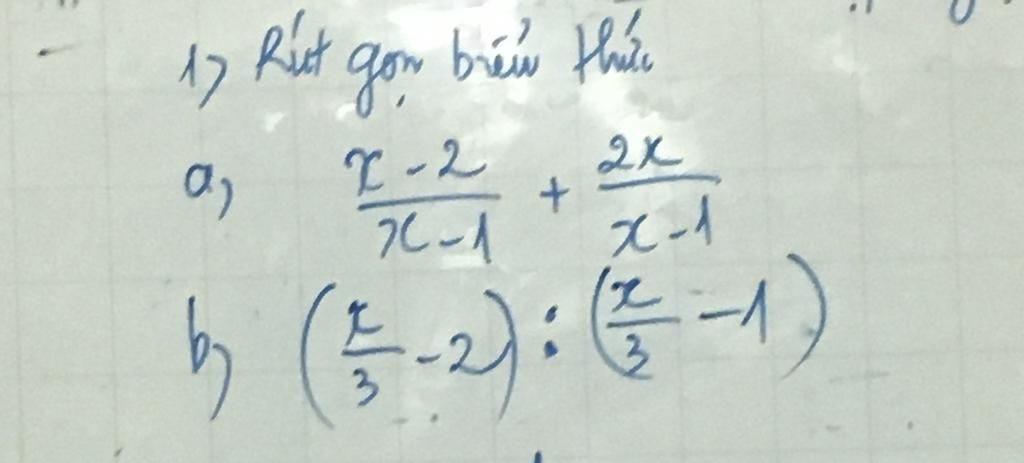 1) Rút gọn biểu thức
a) \frac{x-2}{x-1} + \frac{2x}{x-1}
b) (\frac{x}{3} - 2) : (\frac{x}{3} - 1)